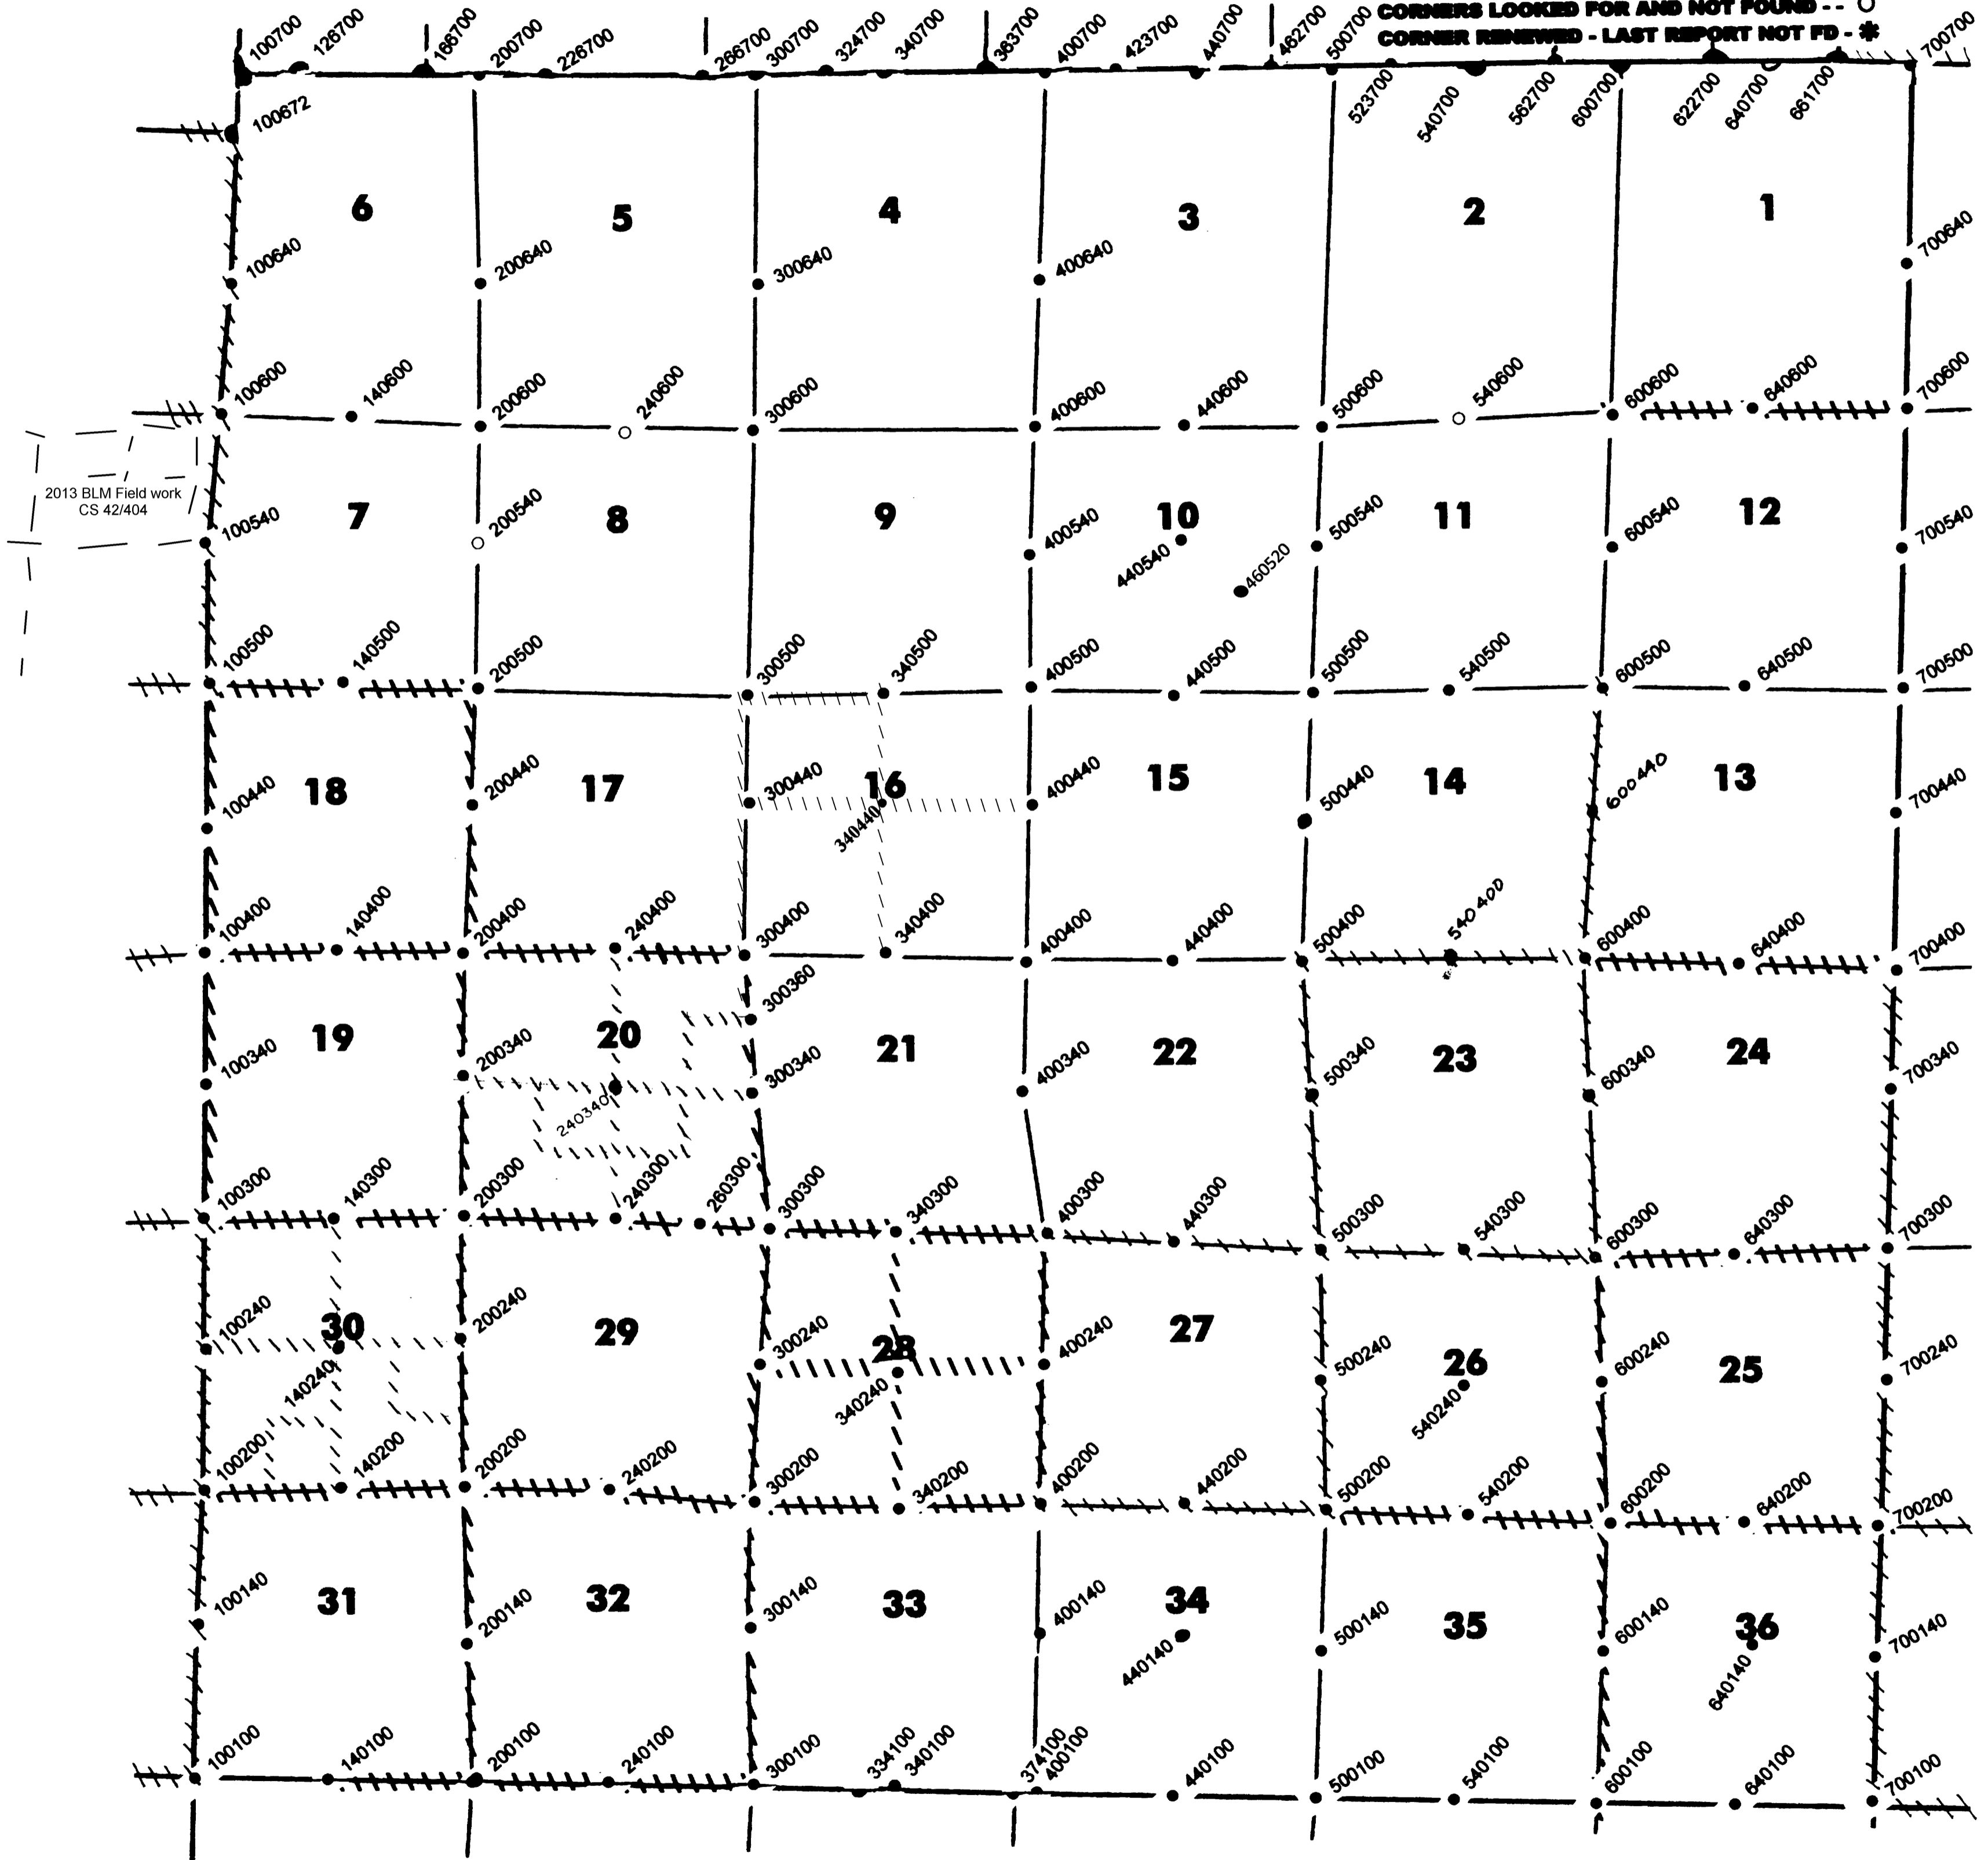 CORNERS LOOKED FOR AND NOT FOUND - - O
CORNER RENEWED - LAST REPORT NOT FD - *
100700 126700 166700 200700 226700 266700 300700 324700 340700 363700 400700 423700 440700 462700 500700 700700
523700 540700 562700 600700 622700 640700 661700
100672
6 5 4 3 2 1
100640 200640 300640 400640 700640
100600 140600 200600 240600 300600 400600 440600 500600 540600 600600 640600 700600
2013 BLM Field work
CS 42/404
7 8 9 10 11 12
100540 200540 400540 440540 500540 600540 700540
460520
100500 140500 200500 300500 340500 400500 440500 500500 540500 600500 640500 700500
18 17 16 15 14 13
100440 200440 300440 340440 400440 500440 600440 700440
100400 140400 200400 240400 300400 340400 400400 440400 500400 540400 600400 640400 700400
300360
19 20 21 22 23 24
100340 200340 240340 300340 400340 500340 600340 700340
100300 140300 200300 240300 260300 300300 340300 400300 440300 500300 540300 600300 640300 700300
30 29 28 27 26 25
100240 140240 200240 300240 340240 400240 500240 540240 600240 700240
100200 140200 200200 240200 300200 340200 400200 440200 500200 540200 600200 640200 700200
31 32 33 34 35 36
100140 200140 300140 400140 440140 500140 600140 640140 700140
100100 140100 200100 240100 300100 334100 340100 374100 400100 440100 500100 540100 600100 640100 700100